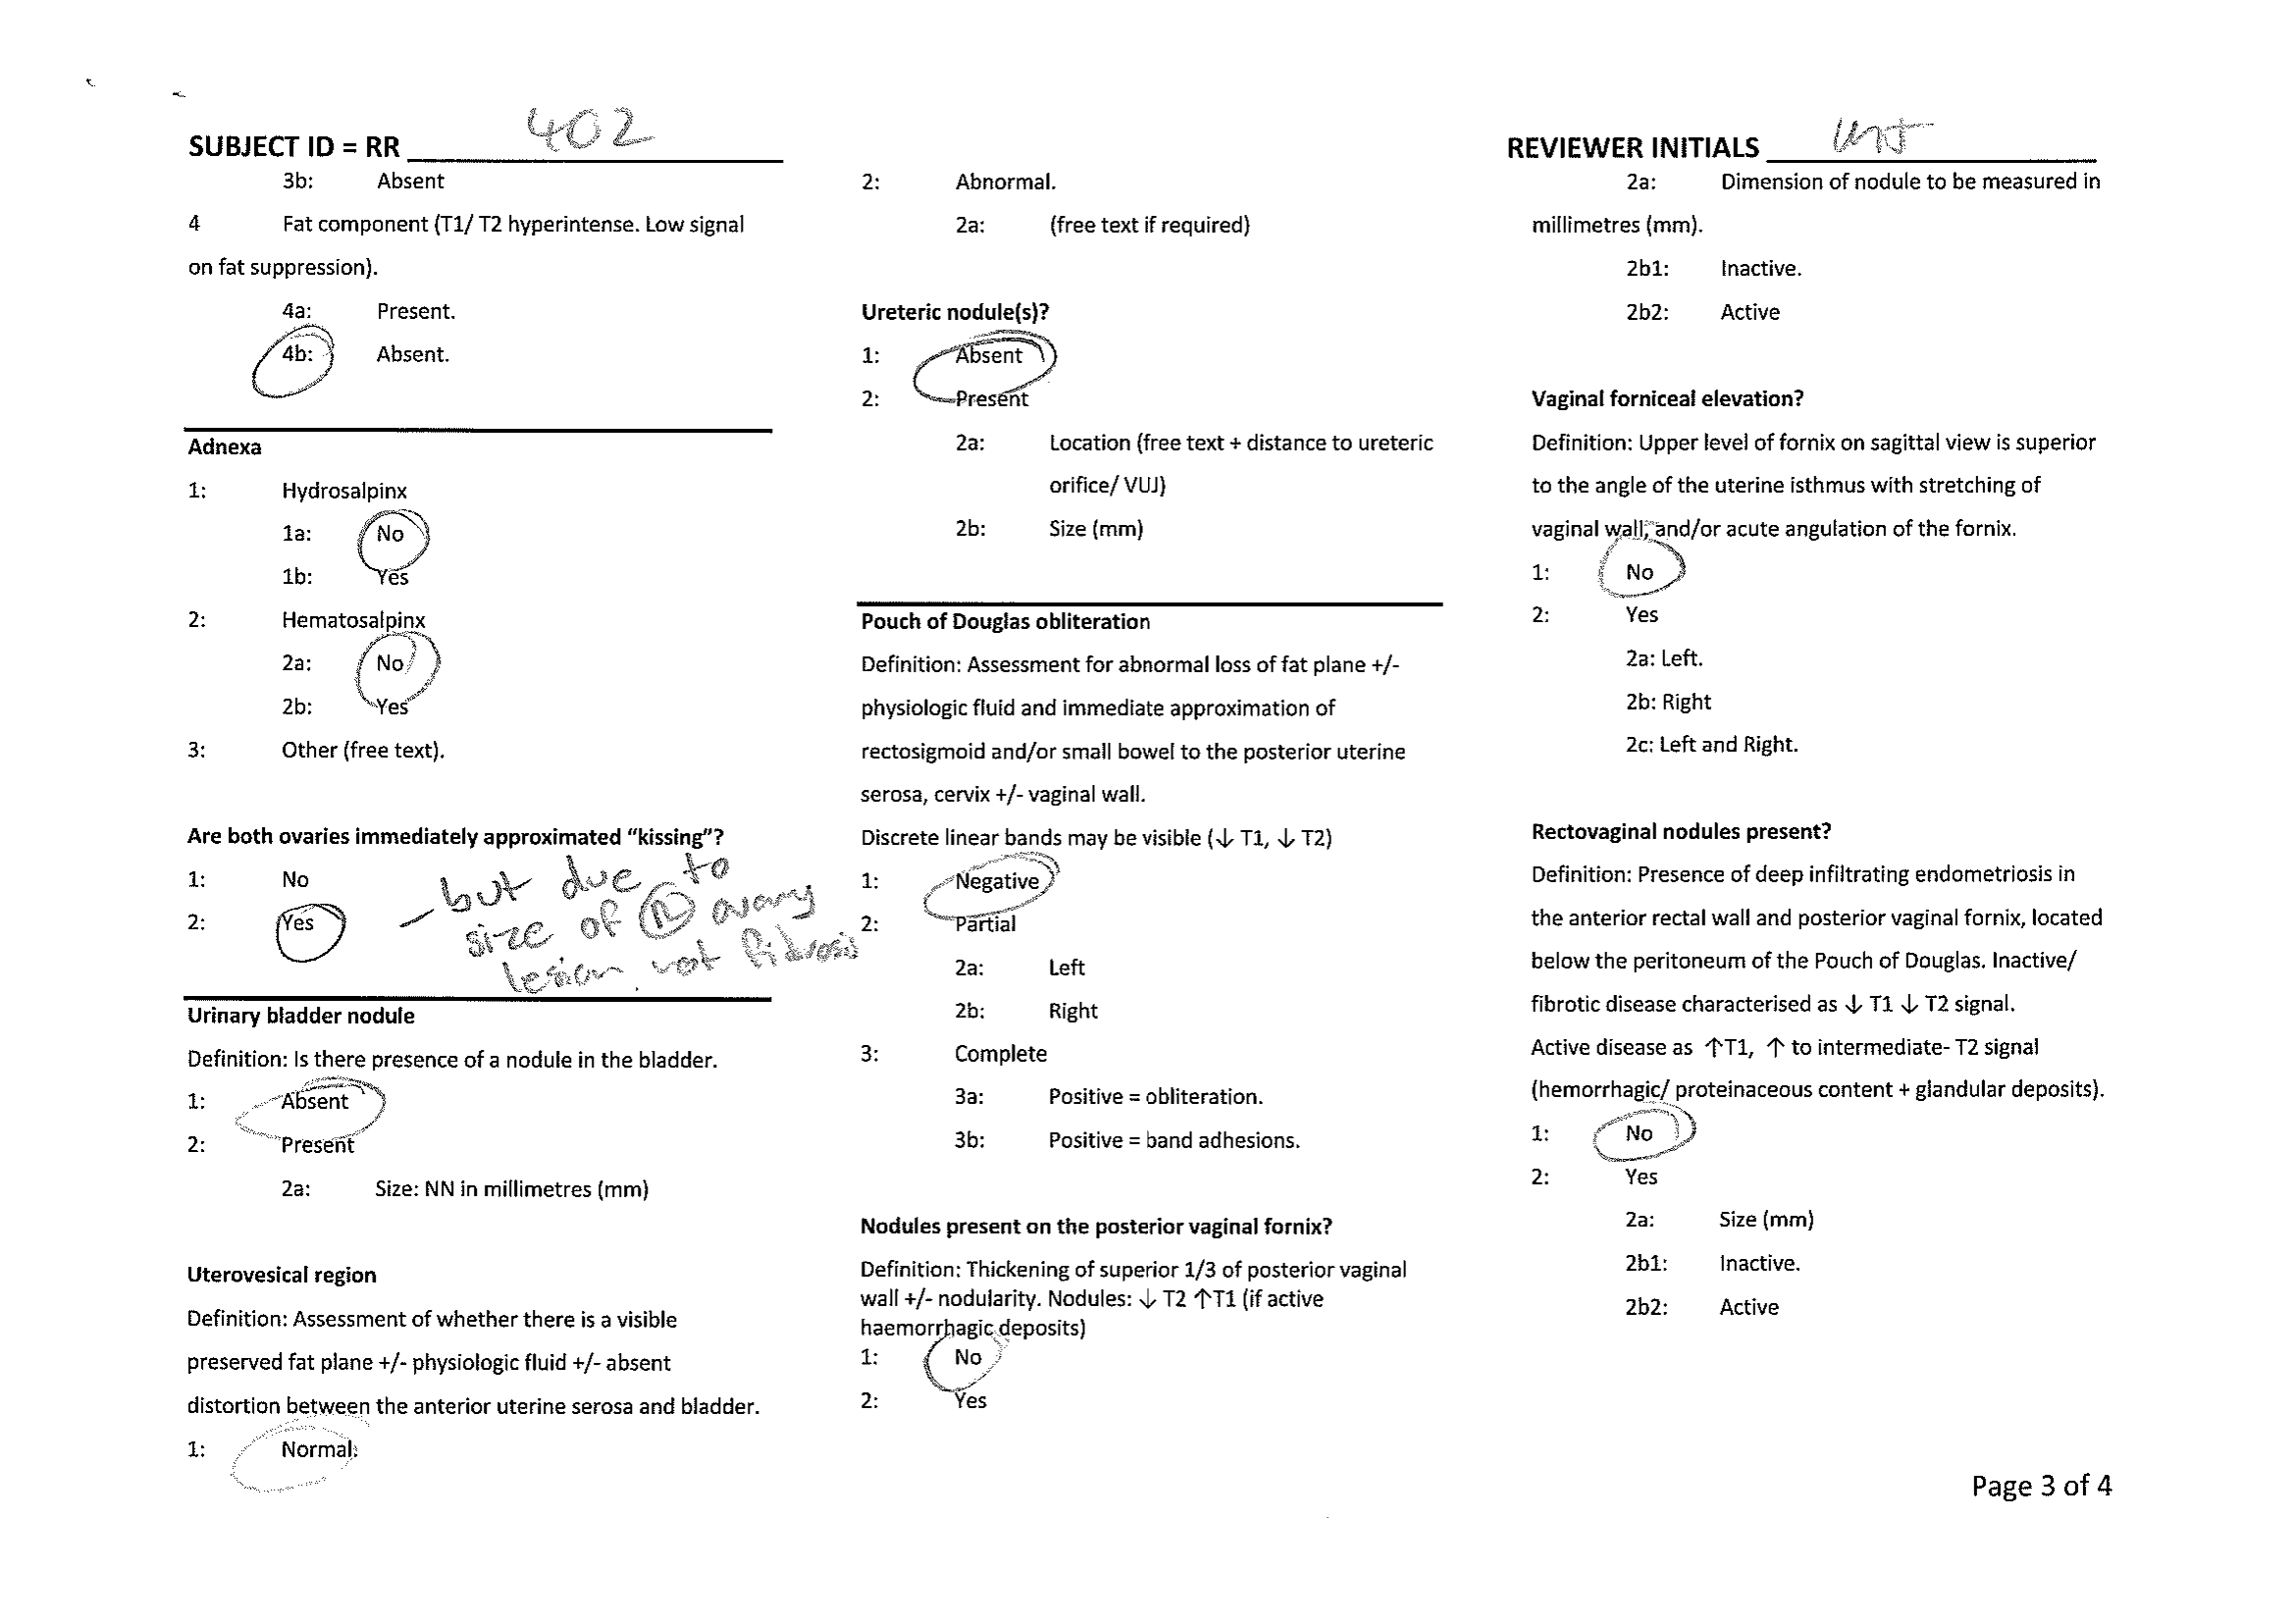 SUBJECT ID = RR 402
3b: Absent
4 Fat component (T1/ T2 hyperintense. Low signal
on fat suppression).
4a: Present.
4b: Absent.
Adnexa
1: Hydrosalpinx
1a: No
1b: Yes
2: Hematosalpinx
2a: No
2b: Yes
3: Other (free text).
Are both ovaries immediately approximated “kissing”?
1: No
2: Yes
– but due to
size of (R) ovary
lesion. not fibrosis
Urinary bladder nodule
Definition: Is there presence of a nodule in the bladder.
1: Absent
2: Present
2a: Size: NN in millimetres (mm)
Uterovesical region
Definition: Assessment of whether there is a visible
preserved fat plane +/- physiologic fluid +/- absent
distortion between the anterior uterine serosa and bladder.
1: Normal.
2: Abnormal.
2a: (free text if required)
Ureteric nodule(s)?
1: Absent
2: Present
2a: Location (free text + distance to ureteric
orifice/ VUJ)
2b: Size (mm)
Pouch of Douglas obliteration
Definition: Assessment for abnormal loss of fat plane +/-
physiologic fluid and immediate approximation of
rectosigmoid and/or small bowel to the posterior uterine
serosa, cervix +/- vaginal wall.
Discrete linear bands may be visible (↓ T1, ↓ T2)
1: Negative
2: Partial
2a: Left
2b: Right
3: Complete
3a: Positive = obliteration.
3b: Positive = band adhesions.
Nodules present on the posterior vaginal fornix?
Definition: Thickening of superior 1/3 of posterior vaginal
wall +/- nodularity. Nodules: ↓ T2 ↑T1 (if active
haemorrhagic deposits)
1: No
2: Yes
REVIEWER INITIALS
2a: Dimension of nodule to be measured in
millimetres (mm).
2b1: Inactive.
2b2: Active
Vaginal forniceal elevation?
Definition: Upper level of fornix on sagittal view is superior
to the angle of the uterine isthmus with stretching of
vaginal wall, and/or acute angulation of the fornix.
1: No
2: Yes
2a: Left.
2b: Right
2c: Left and Right.
Rectovaginal nodules present?
Definition: Presence of deep infiltrating endometriosis in
the anterior rectal wall and posterior vaginal fornix, located
below the peritoneum of the Pouch of Douglas. Inactive/
fibrotic disease characterised as ↓ T1 ↓ T2 signal.
Active disease as ↑T1, ↑ to intermediate- T2 signal
(hemorrhagic/ proteinaceous content + glandular deposits).
1: No
2: Yes
2a: Size (mm)
2b1: Inactive.
2b2: Active
Page 3 of 4